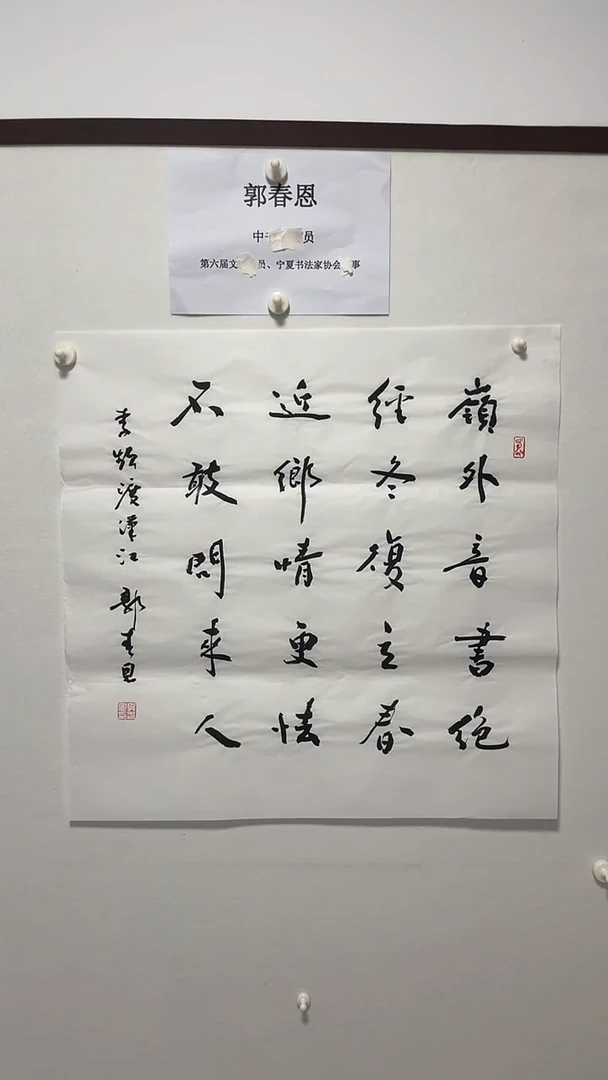 郭春恩
中 员
第六届文 员、宁夏书法家协会 事
嶺外音書絶
經冬復立春
近鄉情更怯
不敢問來人
李频渡漢江 郭春恩